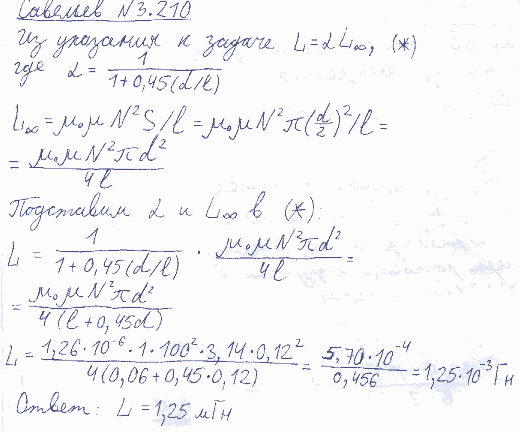 Савельев N 3.210
Из указания к задаче L = αL∞, (*)
где α = 1/(1+0,45(d/l))
L∞ = μ₀μN²S/l = μ₀μN²π(d/2)²/l =
= μ₀μN²πd²/4l
Подставим α и L∞ в (*):
L = 1/(1+0,45(d/l)) · μ₀μN²πd²/4l =
= μ₀μN²πd²/4(l+0,45d)
L = 1,26·10⁻⁶·1·100²·3,14·0,12²/4(0,06+0,45·0,12) = 5,70·10⁻⁴/0,456 = 1,25·10⁻³ Гн
Ответ: L = 1,25 мГн